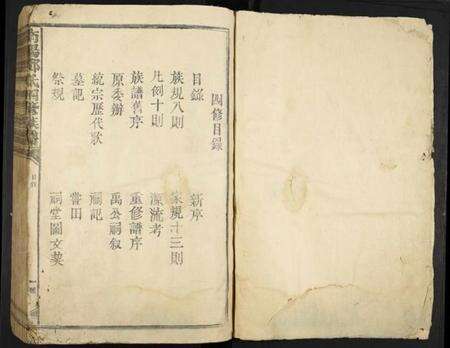 四修目錄
目錄 新序
族規八則 家規十三則
凡例十則 源流考
族譜舊序 重修譜序
原委辦 萬公嗣叙
統宗歷代歌 嗣記
墓記 嘗田
祭規 祠堂圖文契
目錄
一